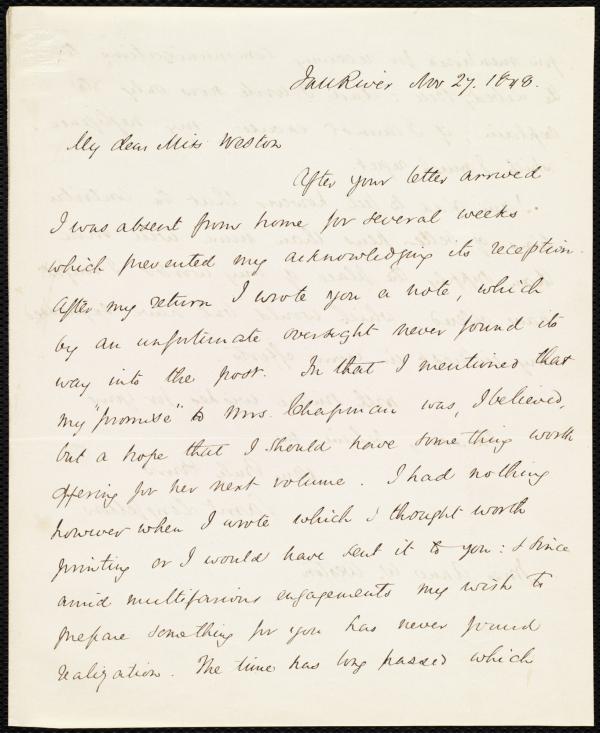 Fall River Nov 27. 1848.
My dear Miss Weston
After your letter arrived
I was absent from home for several weeks
which prevented my acknowledging its reception.
After my return I wrote you a note, which
by an unfortunate oversight never found its
way into the post. In that I mentioned that
my "promise" to Mrs. Chapman was, I believed,
but a hope that I should have something worth
offering for her next volume. I had nothing
however when I wrote which I thought worth
printing or I would have sent it to you: & since
amid multifarious engagements my wish to
prepare something for you has never found
realization. The time has long passed which